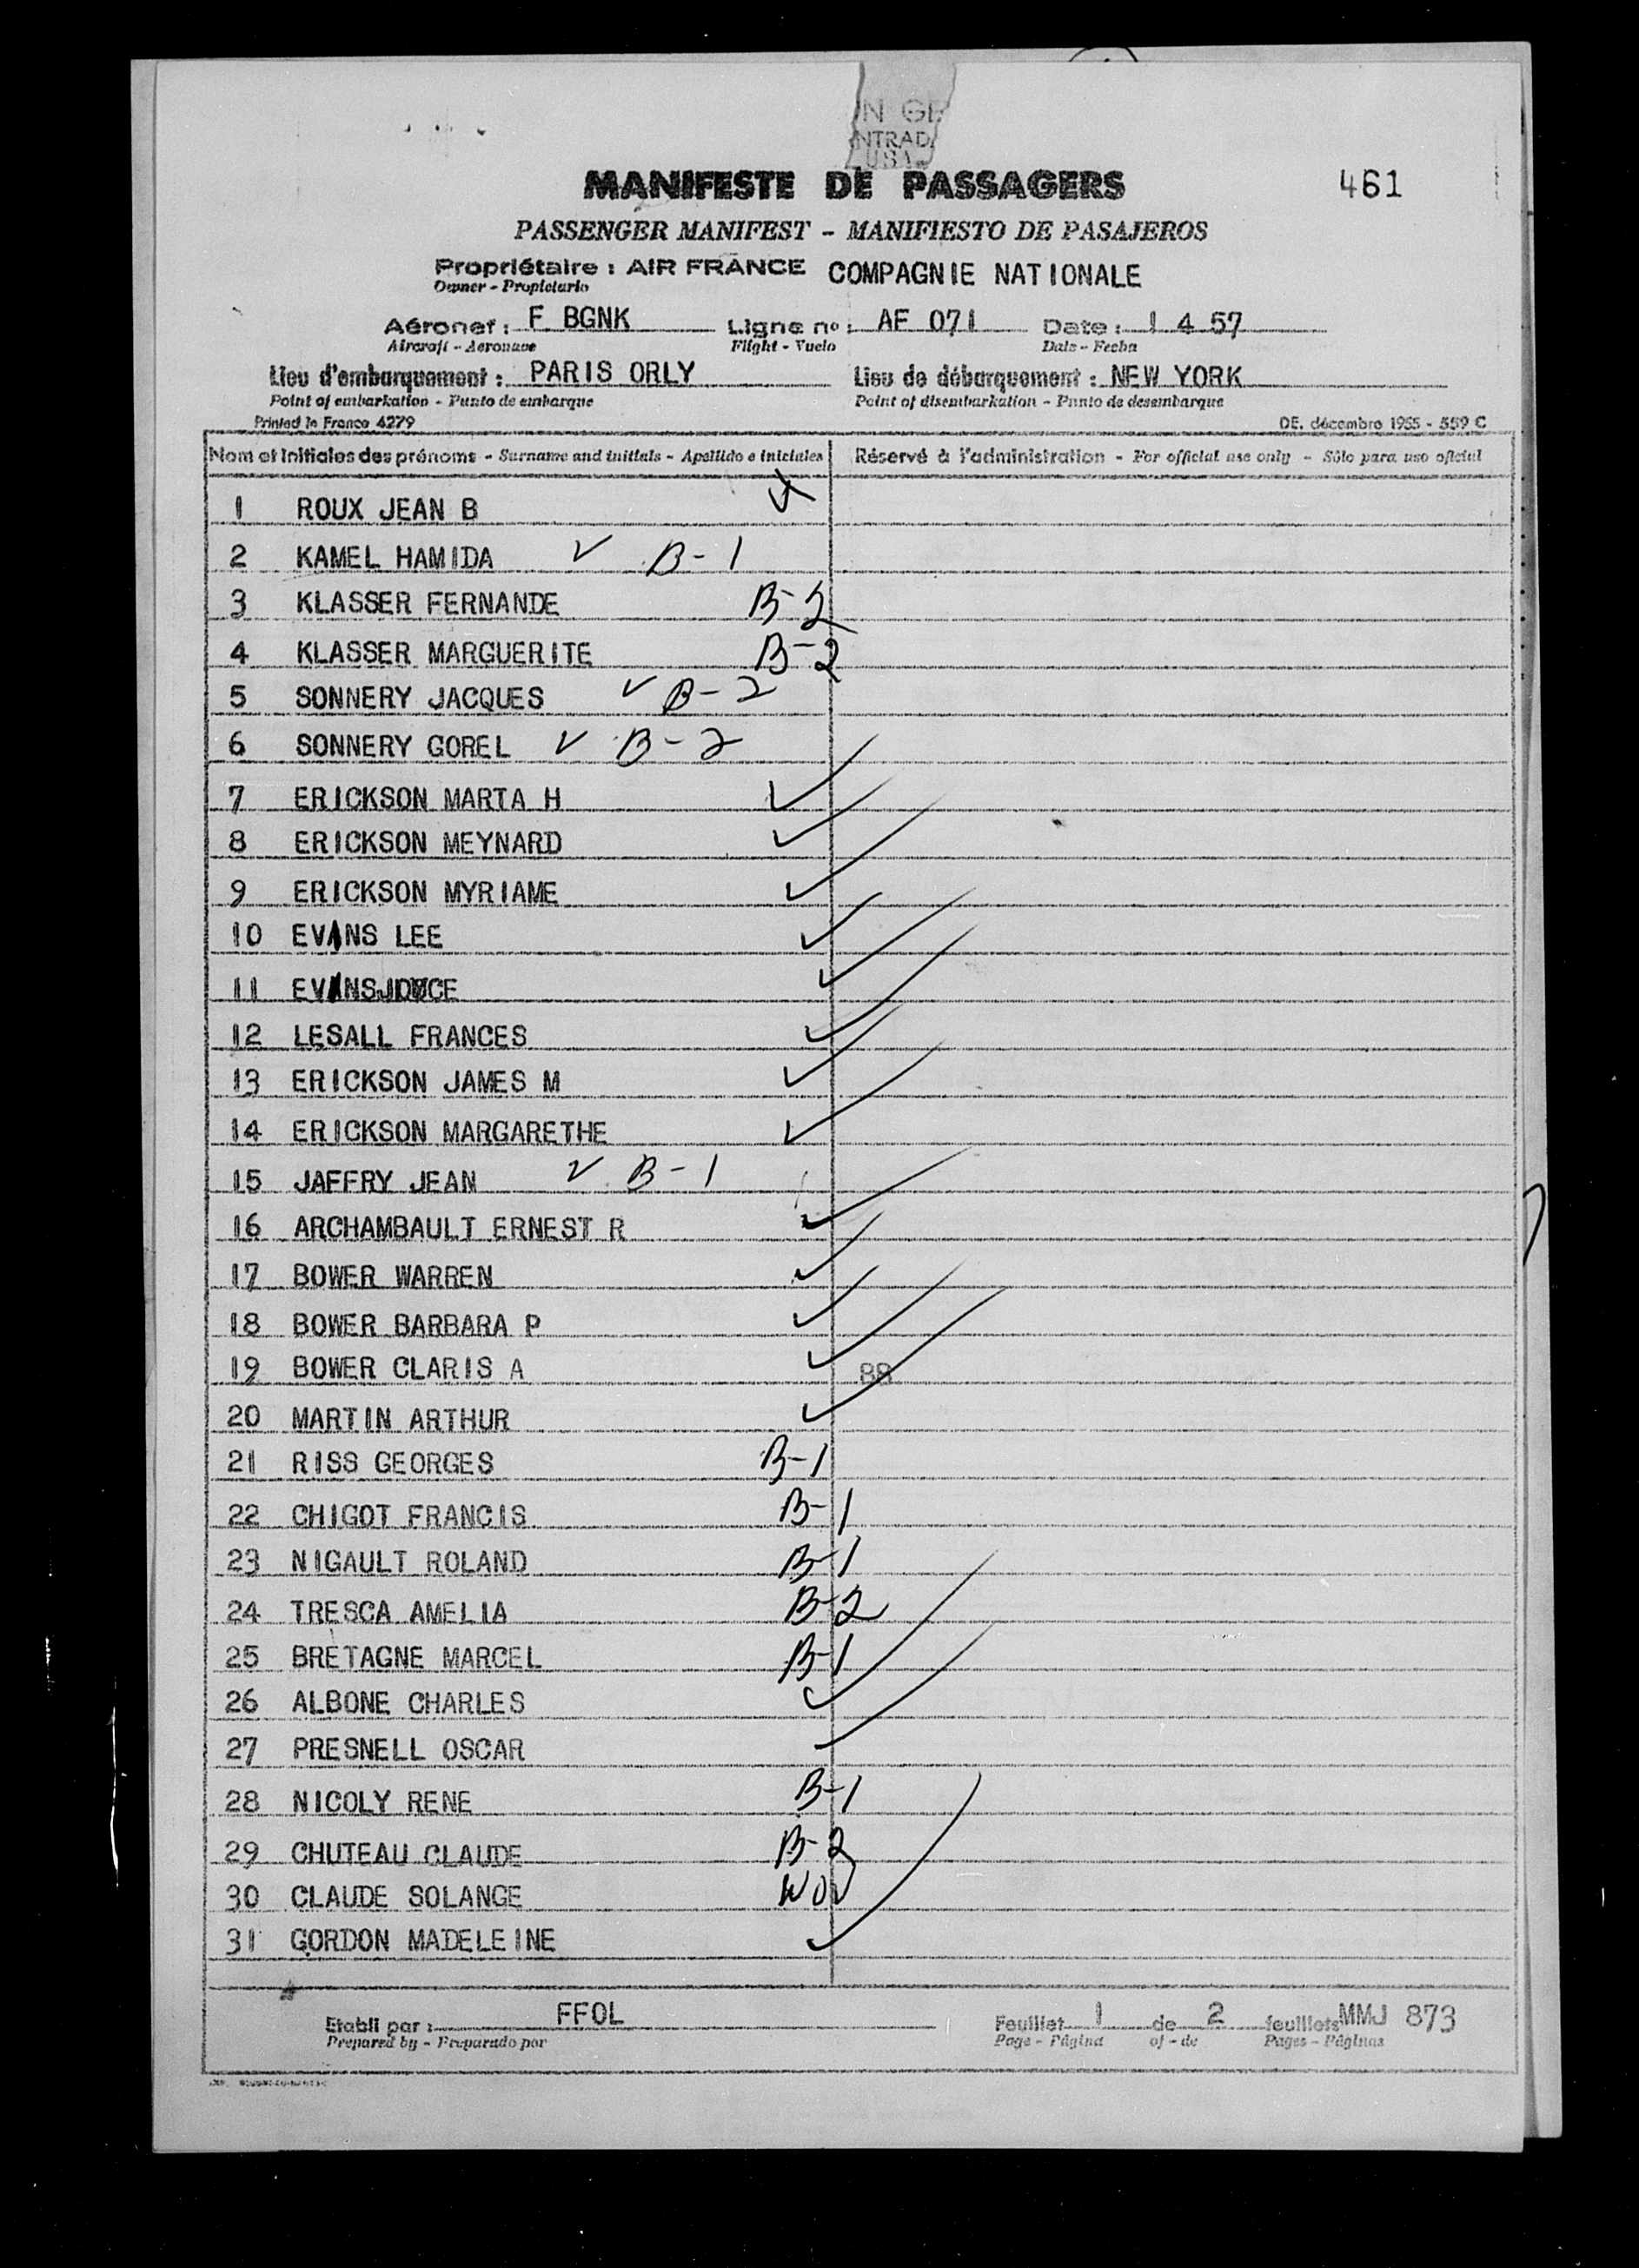 N GE
NTRAD
USA
MANIFESTE DE PASSAGERS
461
PASSENGER MANIFEST - MANIFIESTO DE PASAJEROS
Propriétaire : AIR FRANCE COMPAGNIE NATIONALE
Owner - Propietario
Aéronef : F BGNK Ligne no : AF 071 Date : 1 4 57
Aircraft - Aeronave Flight - Vuelo Date - Fecha
Lieu d'embarquement : PARIS ORLY Lieu de débarquement : NEW YORK
Point of embarkation - Punto de embarque Point of disembarkation - Punto de desembarque
Printed in France 4279 DE. décembre 1955 - 559 C
Nom et initiales des prénoms - Surname and initials - Apellido e iniciales Réservé à l'administration - For official use only - Sólo para uso oficial
1 ROUX JEAN B
2 KAMEL HAMIDA ✓ B-1
3 KLASSER FERNANDE B-2
4 KLASSER MARGUERITE B-2
5 SONNERY JACQUES ✓ B-2
6 SONNERY GOREL ✓ B-2
7 ERICKSON MARTA H ✓
8 ERICKSON MEYNARD ✓
9 ERICKSON MYRIAME ✓
10 EVANS LEE ✓
11 EVANS ✓
12 LESALL FRANCES ✓
13 ERICKSON JAMES M ✓
14 ERICKSON MARGARETHE ✓
15 JAFFRY JEAN ✓ B-1
16 ARCHAMBAULT ERNEST R ✓
17 BOWER WARREN ✓
18 BOWER BARBARA P ✓
19 BOWER CLARIS A ✓ BB
20 MARTIN ARTHUR ✓
21 RISS GEORGES B-1
22 CHIGOT FRANCIS B-1
23 NIGAULT ROLAND B-1
24 TRESCA AMELIA B-2
25 BRETAGNE MARCEL B-1
26 ALBONE CHARLES ✓
27 PRESNELL OSCAR ✓
28 NICOLY RENE B-1
29 CHUTEAU CLAUDE B-2
30 CLAUDE SOLANGE
31 GORDON MADELEINE ✓
Etabli par : FFOL Feuillet 1 de 2 feuillets MMJ 873
Prepared by - Preparado por Page - Página of - de Pages - Páginas